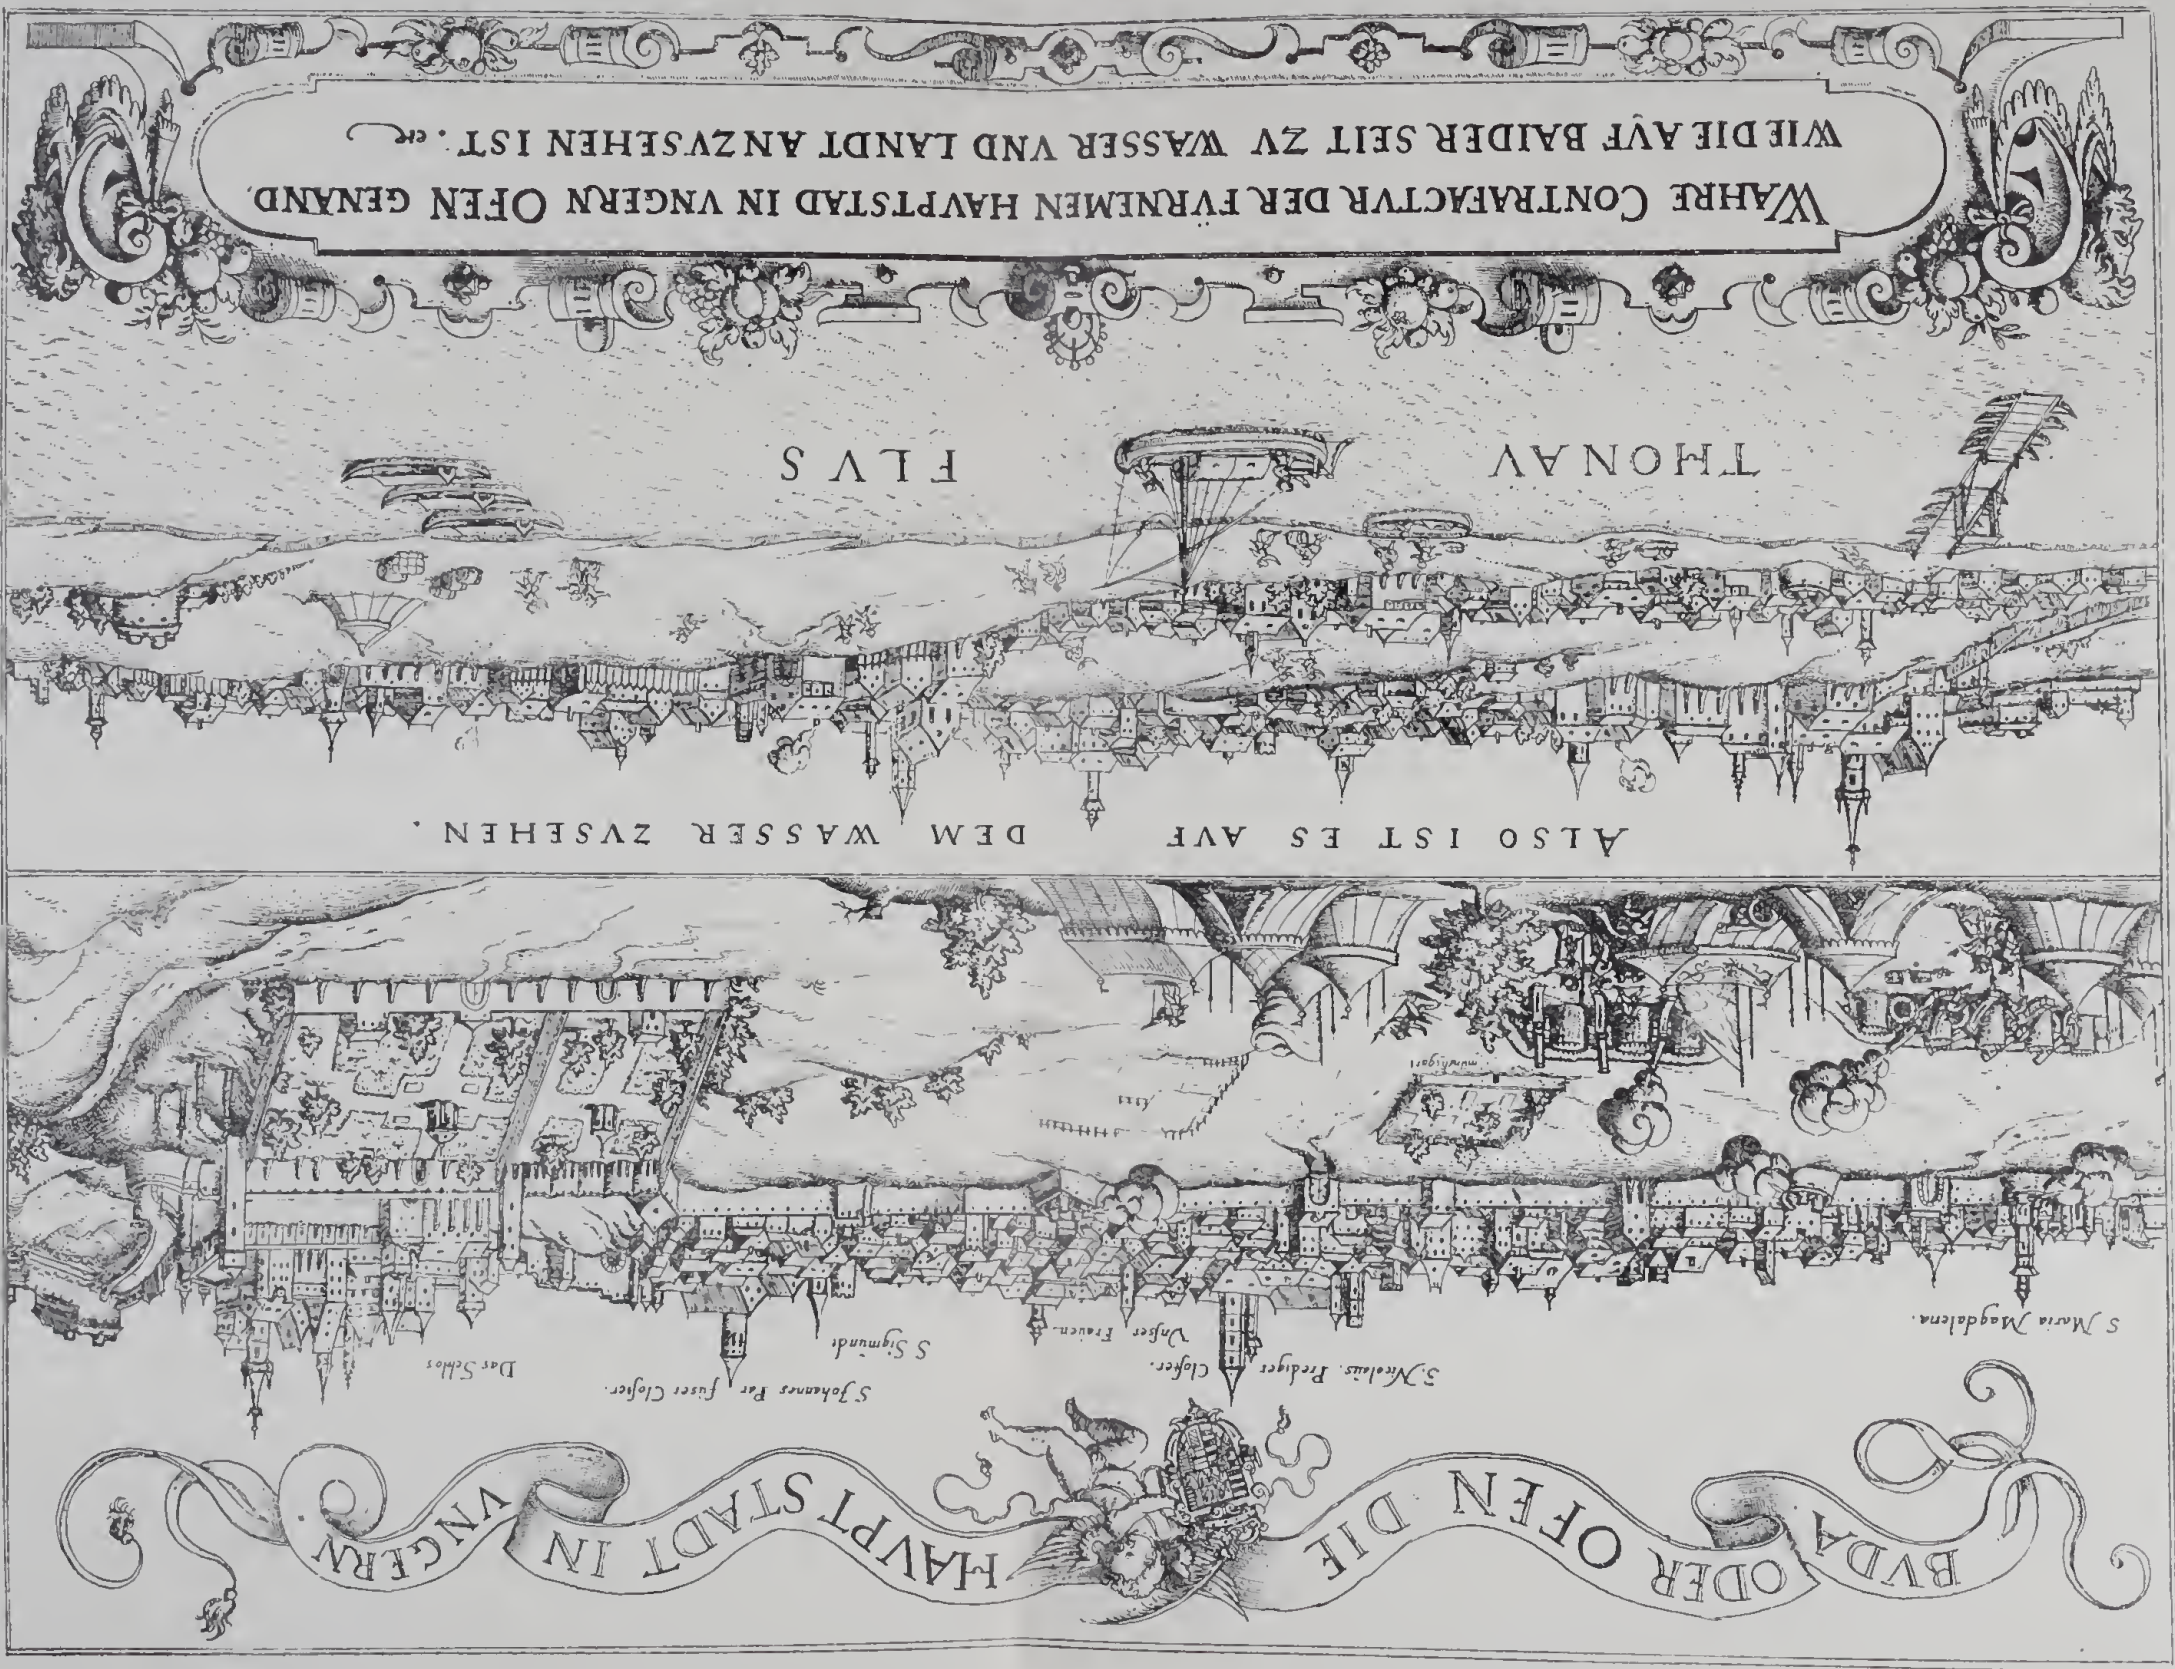 BVDA ODER OFEN DIE HAVPT STADT IN VNGERN
S Maria Magdalena.
S. Nicolaüs. Prediger Closter.
Vnser Fraüen.
S Sigmündt
S Johannes Par füser Closter.
Das Schlos
ALSO IST ES AVF DEM WASSER ZVSEHEN.
THONAV FLVS
WAHRE CONTRAFACTVR DER FVRNEMEN HAVPTSTAD IN VNGERN OFEN GENAND.
WIE DIE AVF BAIDER SEIT ZV WASSER VND LANDT ANZVSEHEN IST.